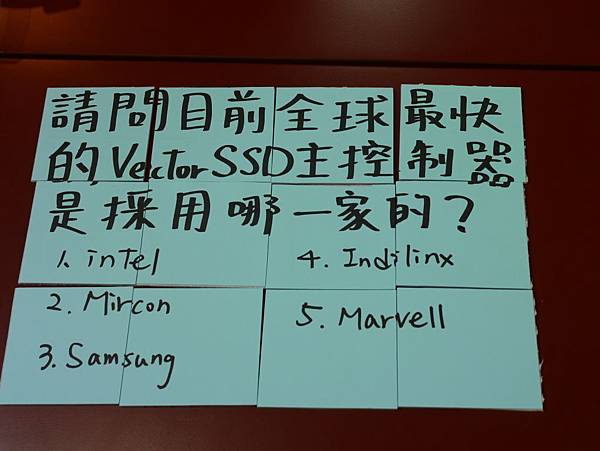 請問目前全球最快
的Vector SSD主控制器
是採用哪一家的?
1. intel
4. Indilinx
2. Mircon
5. Marvell
3. Samsung